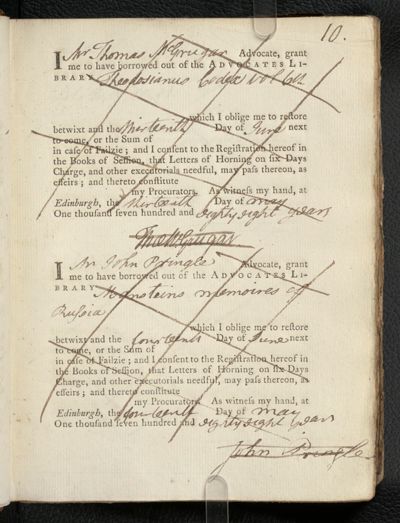 10.
I Mr Thomas McGrugar Advocate, grant
me to have borrowed out of the ADVOCATES LI-
BRARY Theodosianus Codex vol 6th
which I oblige me to reſtore
betwixt and the thirteenth Day of June next
to come, or the Sum of
in caſe of Failzie ; and I conſent to the Regiſtration hereof in
the Books of Seſſion, that Letters of Horning on ſix Days
Charge, and other executorials needful, may paſs thereon, as
effeirs ; and thereto conſtitute
my Procurators. As witneſs my hand, at
Edinburgh, the thirteenth Day of May
One thouſand ſeven hundred and eightyeight years
Tho McGrugar
I Mr John Pringle Advocate, grant
me to have borrowed out of the ADVOCATES LI-
BRARY Mansteins memoires of
Russia
which I oblige me to reſtore
betwixt and the fourteenth Day of June next
to come, or the Sum of
in caſe of Failzie ; and I conſent to the Regiſtration hereof in
the Books of Seſſion, that Letters of Horning on ſix Days
Charge, and other executorials needful, may paſs thereon, as
effeirs ; and thereto conſtitute
my Procurators. As witneſs my hand, at
Edinburgh, the fourteenth Day of May
One thouſand ſeven hundred and eightyeight years
John Pringle